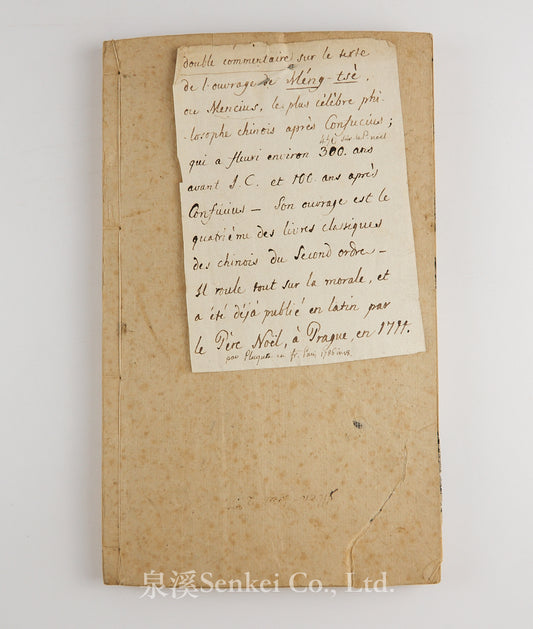 double commentaire sur le texte
de l'ouvrage de Méng-tsè,
ou Mencius, le plus célèbre phi-
losophe chinois après Confucius;
qui a fleuri environ 300. ans
avant J. C. et 100. ans après
Confucius — Son ouvrage est le
quatrième des livres classiques
des chinois du Second ordre —
Il roule tout sur la morale, et
a été déjà publié en latin par
le Père Noël, à Prague, en 1711.
par Pluquet en fr. Paris
泉溪Senkei Co., Ltd.